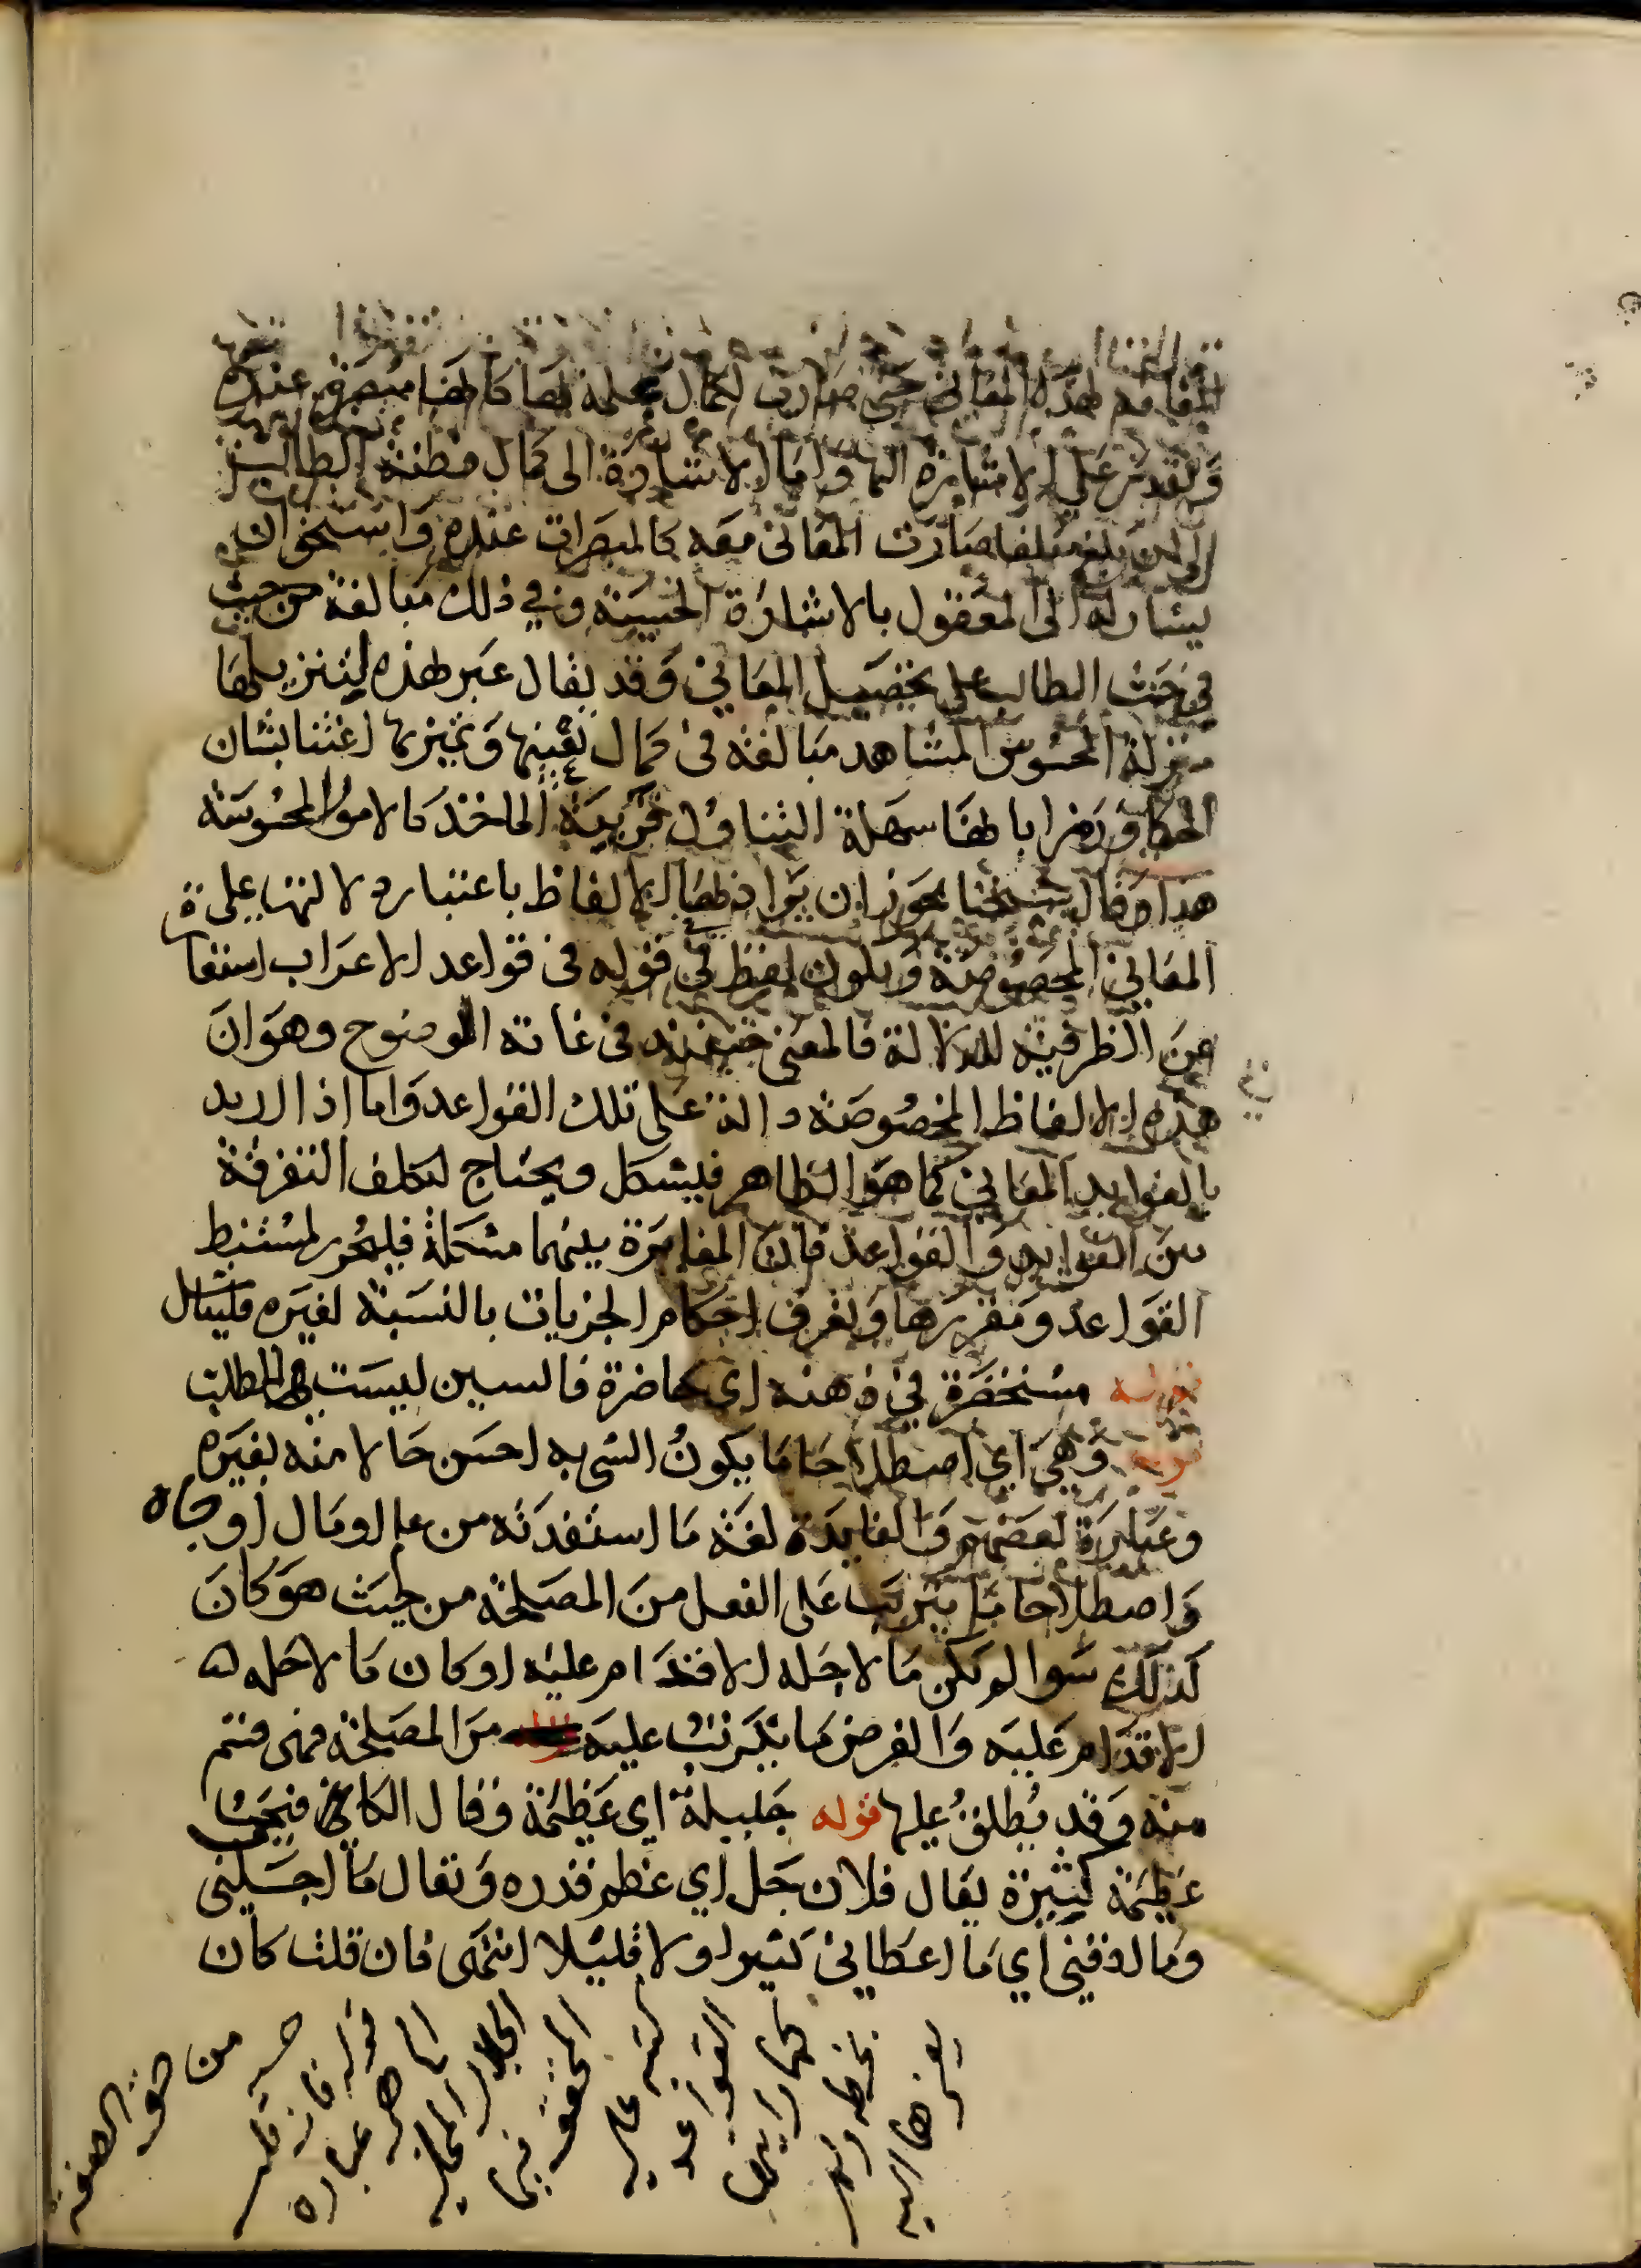 المقام لهذه المعاني حتى صارت لكمال علمه بها كانها مبصرة عنده
وتقدر على الاشارة اليها واما الاشارة الى كمال فطنة الطالب
بلغ مبلغا صارت المعاني معه كالمبصرات عنده واستحق ان
يشار له الى المعقول بالاشارة الحسية وفي ذلك مبالغة من حيث
في حث الطالب على تحصيل المعاني وقد يقال عبر بهذه لتنزيلها
منزلة المحسوس المشاهد مبالغة في كمال تعينها وتميزها اعتنا بشان
الحكم ورمزا بانها سهلة التناول قريبة الماخذ كالامور المحسوسة
هذا وقال شيخنا يجوز ان يراد بها الالفاظ باعتبار دلالتها على
المعاني المخصوصة ويكون لفظ في قوله في قواعد الاعراب استعارة
عن الظرفية للدلالة فالمعنى حينئذ في غاية الوضوح وهو ان
هذه الالفاظ المخصوصة دالة على تلك القواعد واما اذا اريد
بالفوايد المعاني كما هو الظاهر فيشكل ويحتاج لتكلف التفرقة
بين الفوايد والقواعد فان المغايرة بينهما مشكلة فليحرر لمستنبط
القواعد ومقررها وتعرف احكام الجزيات بالنسبة لغيره فليتامل
قوله مستحضرة في ذهنه اي حاضرة فالسين ليست للطلب
قوله وهي اي اصطلاحا ما يكون الشي به احسن حالا منه بغيره
وعبارة بعضهم والفايدة لغة ما استفدته من علم او مال او جاه
واصطلاحا ما يترتب على الفعل من المصلحة من حيث هو كان
كذلك سوا لم يكن ما لاجله الاقدام عليه او كان ما لاجله
الاقدام عليه والغرض ما يترتب عليه من المصلحة فهي قسم
منه وقد يطلق عليها قوله جليلة اي عظيمة وقال الكافيجي
عظيمة كثيرة يقال فلان جل اي عظم قدره وتقال ما اجلني
وما ادقني اي ما اعطاني كثيرا ولا قليلا انتهى فان قلت كان
قوله فان قلت
الى اخر عبارة
الجلال المحلي
المحقق فيها
كتبه على
القواعد
كما رايتها
بخطه ولم
يعزها اليه